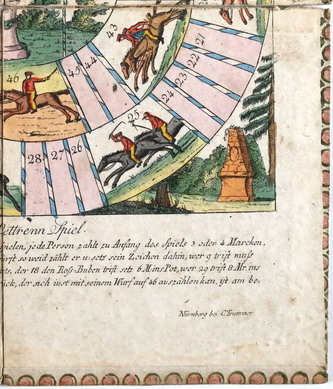 43
46
45
44
21
22
23
24
25
26
27
28
Wettrenn Spiel.
spielen, jede Person zahlt zu Anfang des Spiels 3 oder 4 Marcken,
so weid zählt er u. setz sein Zeichen dahin, wer 9 trift muss
der 18 den Ross-Buben trift setz 6 M ins Pot, wer 29 trift 8 Mr. ins
der sich just mit seinem Wurf auf 46 auszahlen kan, ist am be.
Nürnberg bei C. Trummer.